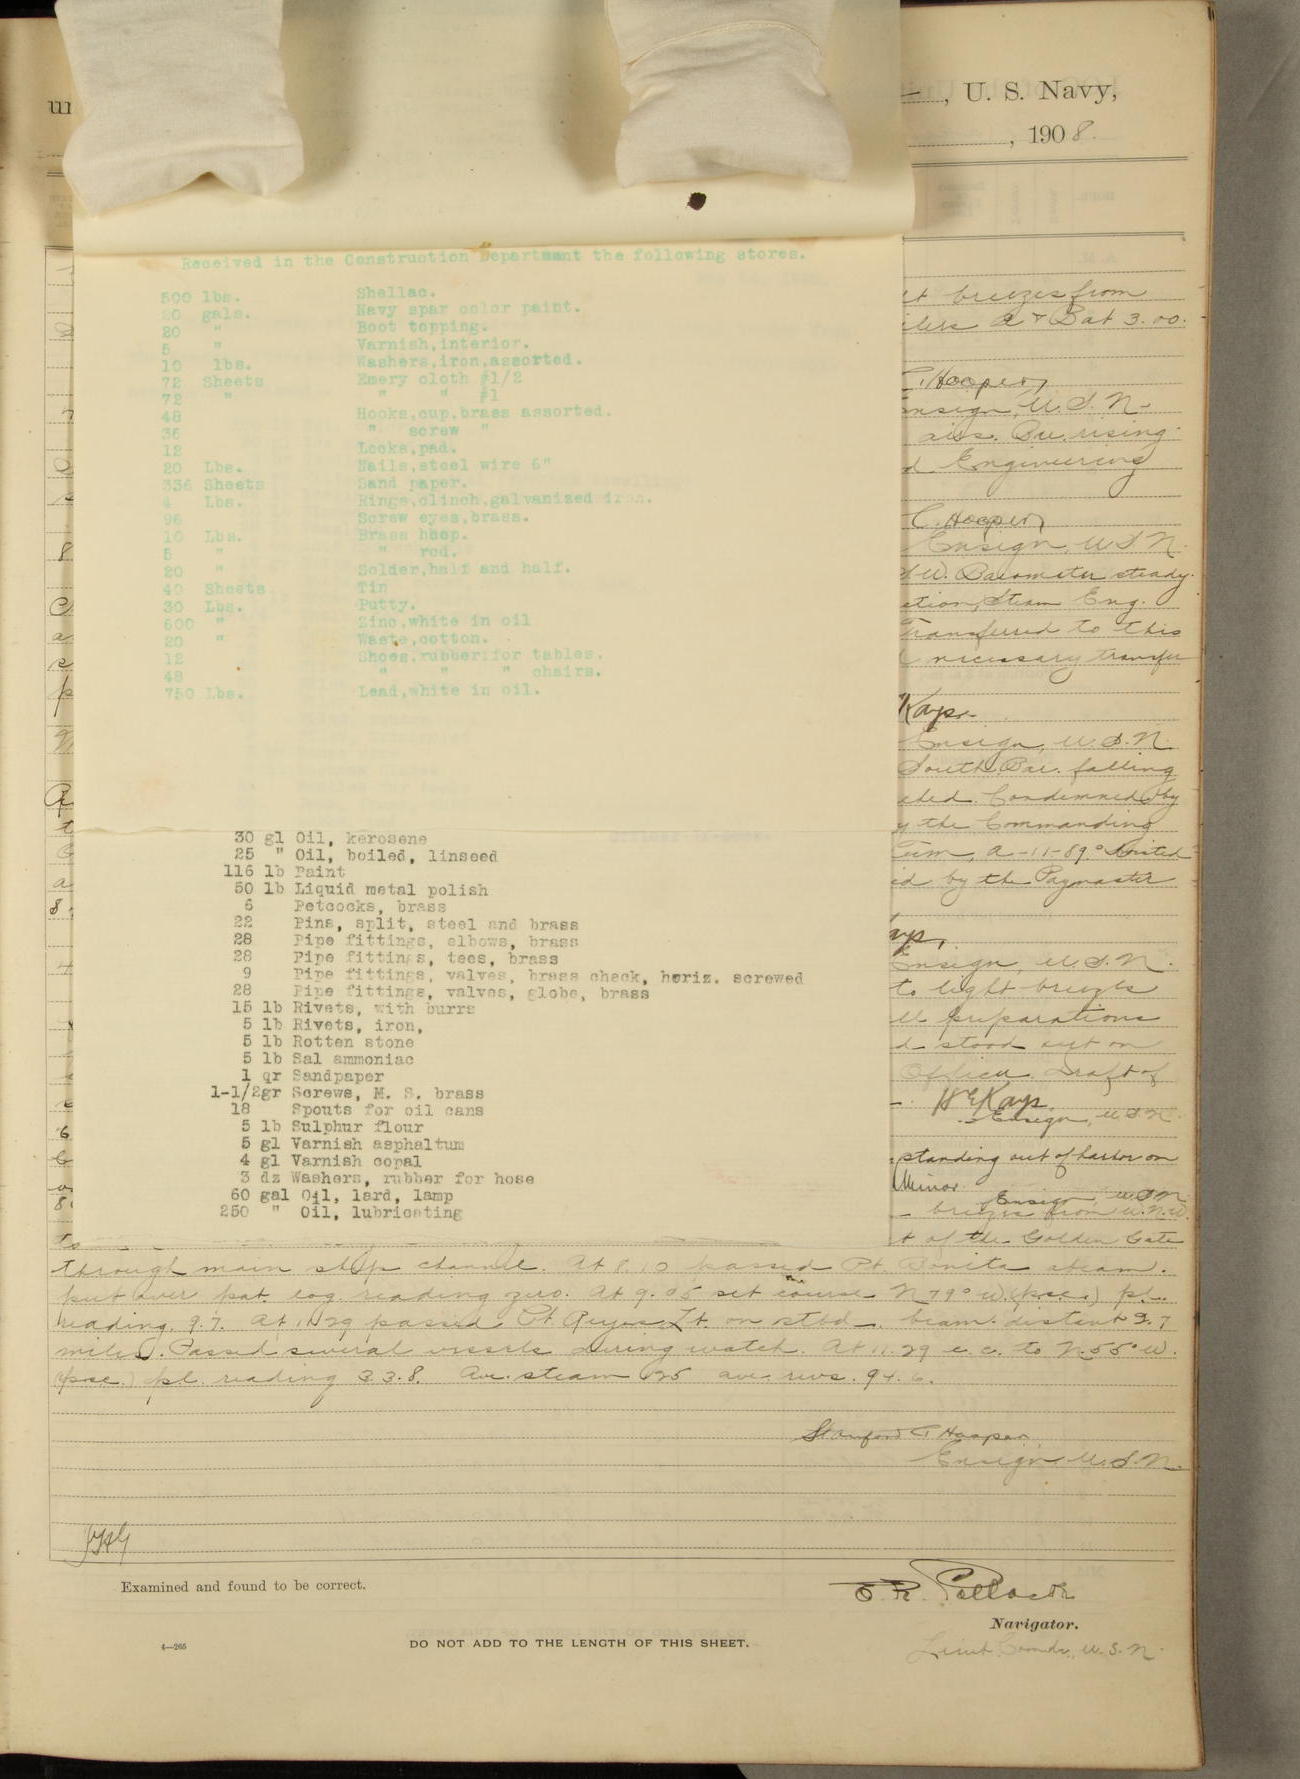 , U. S. Navy,
, 1908.
Received in the Construction Department the following stores.
500 lbs. Shellac.
20 gals. Navy spar color paint.
20 " Boot topping.
5 " Varnish,interior.
10 lbs. Washers,iron,assorted.
72 Sheets Emery cloth #1/2
72 " " " #1
48 Hooks,cup,brass assorted.
36 " screw "
12 Locks,pad.
20 Lbs. Nails,steel wire 6"
336 Sheets Sand paper.
4 Lbs. Rings,clinch,galvanized iron.
96 Screw eyes,brass.
10 Lbs. Brass hoop.
5 " " rod.
20 " Solder,half and half.
40 Sheets Tin
30 Lbs. Putty.
600 " Zinc,white in oil
20 " Waste,cotton.
12 Shoes,rubber:for tables.
48 " " " chairs.
750 Lbs. Lead,white in oil.
30 gl Oil, kerosene
25 " Oil, boiled, linseed
116 lb Paint
50 lb Liquid metal polish
6 Petcocks, brass
22 Pins, split, steel and brass
28 Pipe fittings, elbows, brass
28 Pipe fittings, tees, brass
9 Pipe fittings, valves, brass check, horiz. screwed
28 Pipe fittings, valves, globe, brass
15 lb Rivets, with burrs
5 lb Rivets, iron,
5 lb Rotten stone
5 lb Sal ammoniac
1 qr Sandpaper
1-1/2gr Screws, M. S. brass
18 Spouts for oil cans
5 lb Sulphur flour
5 gl Varnish asphaltum
4 gl Varnish copal
3 dz Washers, rubber for hose
60 gal Oil, lard, lamp
250 " Oil, lubricating
breezes from
at 3.00.
Hooper,
Ensign, U.S.N.
Bar. rising
Engineering
C. Hooper,
Ensign, U.S.N.
S.W. Barometer steady.
Steam Eng.
Transferred to this
necessary transfer
Kays.
Ensign, U.S.N.
South. Bar. falling
Condemned by
the Commanding
by the Paymaster
Ensign, U.S.N.
to light breezes
preparations
stood out on
draft of
H E Kays.
Ensign, U.S.N.
standing out of harbor on
Minor
Ensign U.S.N.
breezes from W.N.W.
of the Golden Gate
through main ship channel. At 8.10 passed Pt. Bonita abeam.
put over pat. log reading zero. At 9.05 set course N 79° W (psc.) pl.
reading 9.7. At 11.29 passed Pt. Reyes Lt. on stbd. beam distant 3.7
miles. Passed several vessels during watch. At 11.29 c. c. to N 55° W.
(psc.) pl. reading 33.8. Ave. steam 125 ave revs. 94.6.
Stanford C Hooper,
Ensign U.S.N.
Examined and found to be correct.
Navigator.
4—265
DO NOT ADD TO THE LENGTH OF THIS SHEET.
Lieut. Comdr., U.S.N.